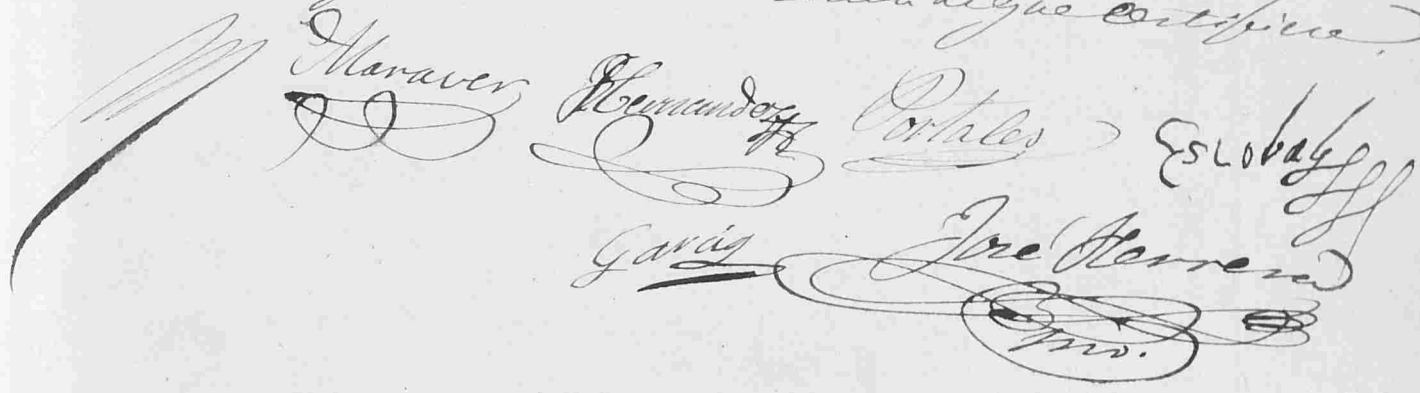 que certifica.
Maraver Hernandez Portales Escobar
Garcia José Herrera
Srio.